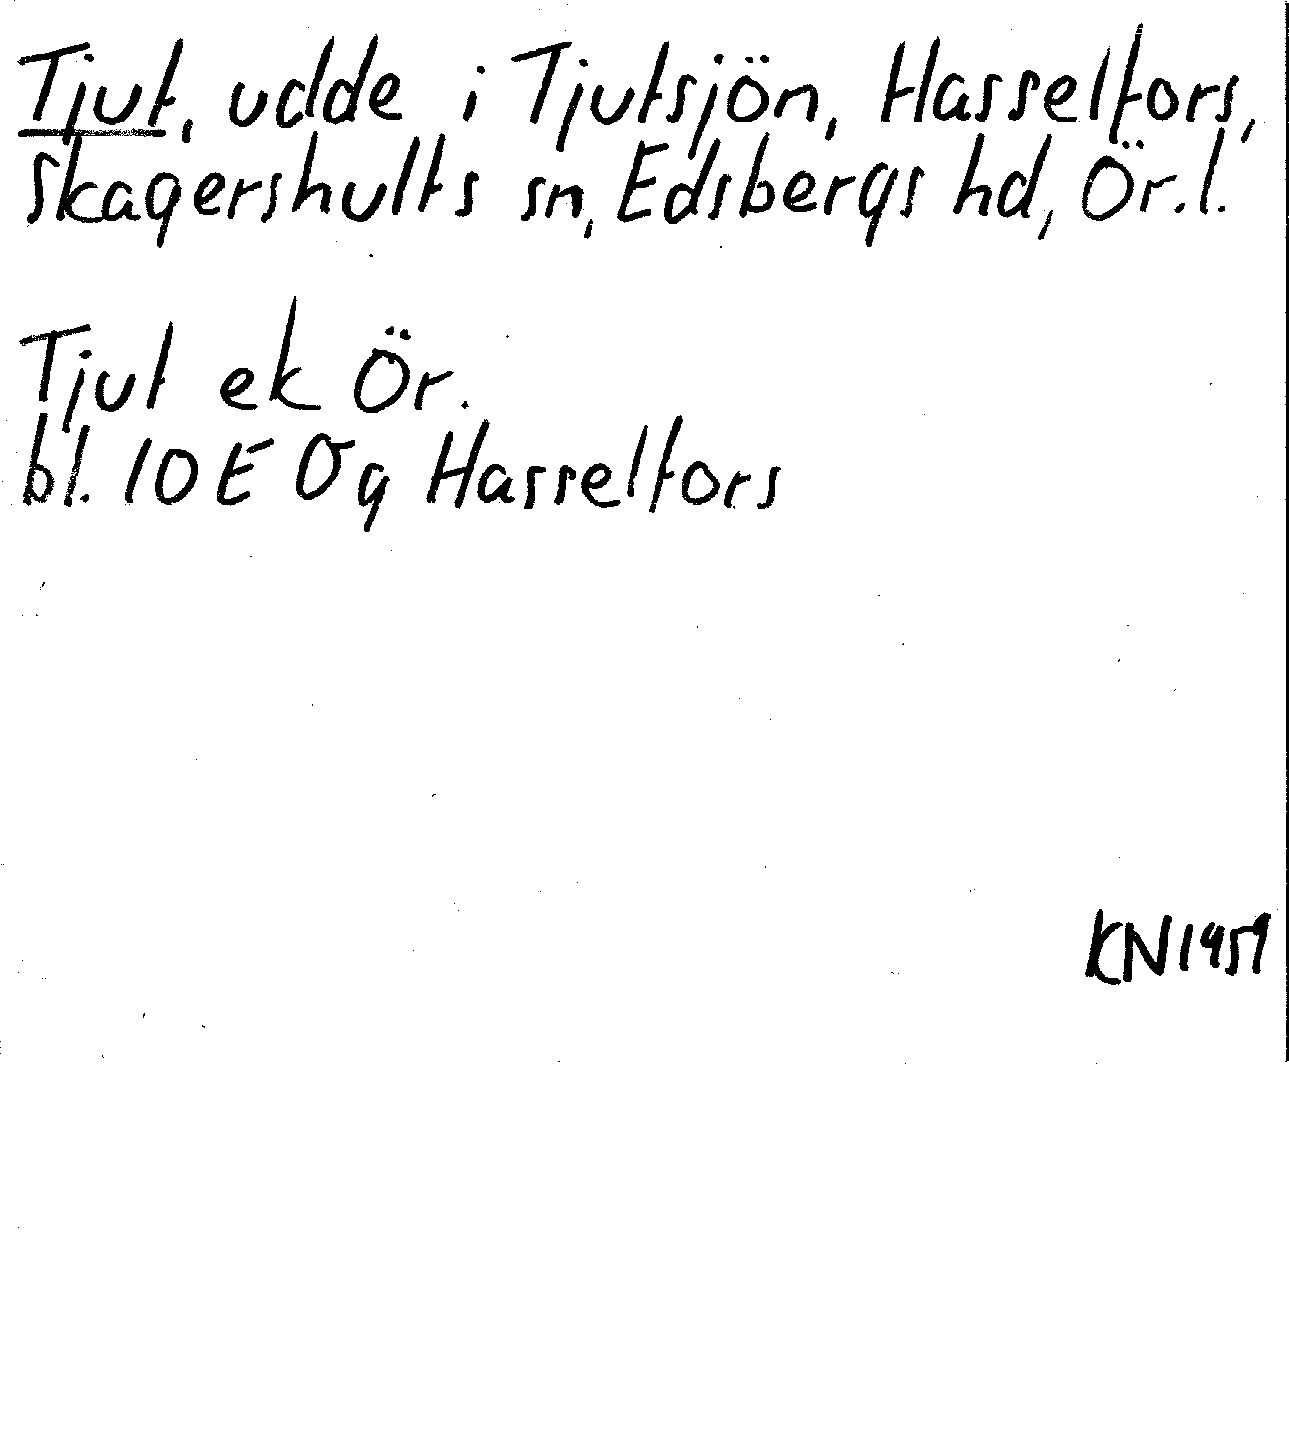 Tjut, udde i Tjutsjön, Hasselfors,
Skagershults sn, Edsbergs hd, Ör. l.
Tjut ek Ör.
bl. 10 E 0g Hasselfors
KN 1959